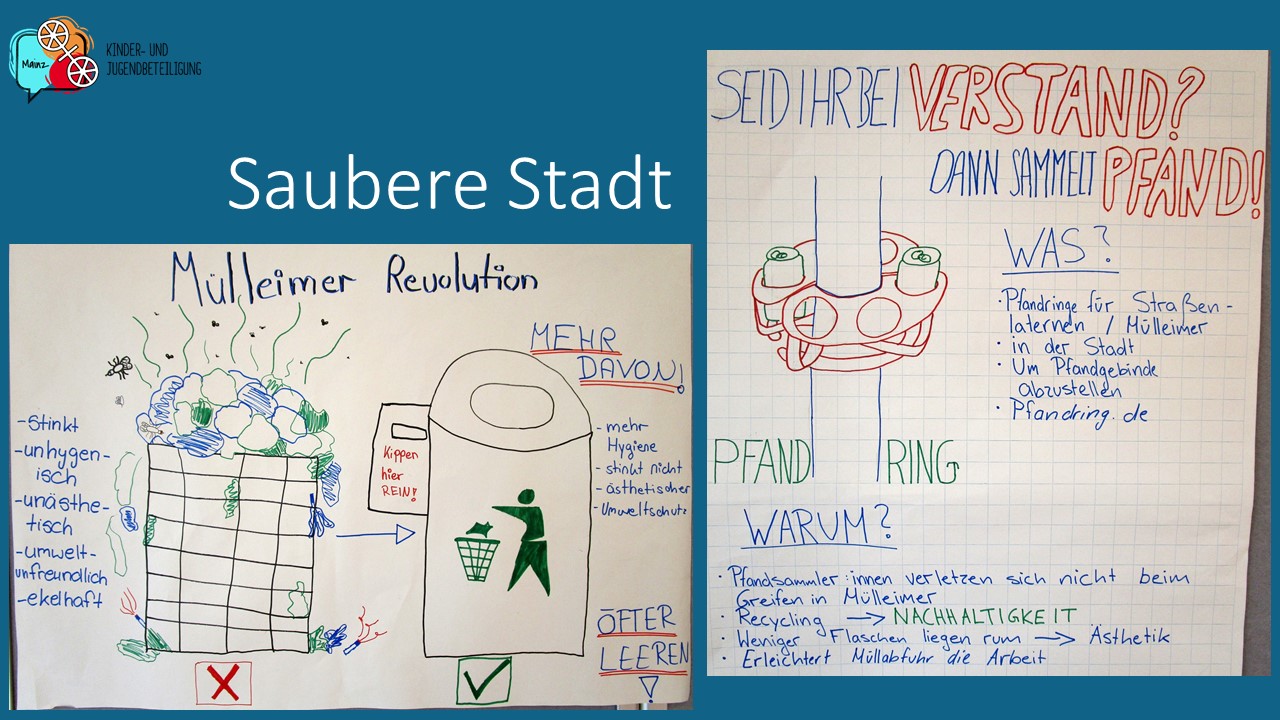 Mainz
KINDER- UND
JUGENDBETEILIGUNG
Saubere Stadt
Mülleimer Revolution
MEHR
DAVON!
-stinkt
-unhygen-
isch
-unästhe-
tisch
-umwelt-
unfreundlich
-ekelhaft
Kippen
hier
REIN!
- mehr
Hygiene
- stinkt nicht
- ästhetischer
- Umweltschutz
ÖFTER
LEEREN
!
SEID IHR BEI VERSTAND?
DANN SAMMELT PFAND!
WAS?
· Pfandringe für Straßen-
laternen / Mülleimer
· in der Stadt
· Um Pfandgebinde
abzustellen
· Pfandring.de
PFAND RING
WARUM?
· Pfandsammler:innen verletzen sich nicht beim
Greifen in Mülleimer
· Recycling → NACHHALTIGKEIT
· Weniger Flaschen liegen rum → Ästhetik
· Erleichtert Müllabfuhr die Arbeit